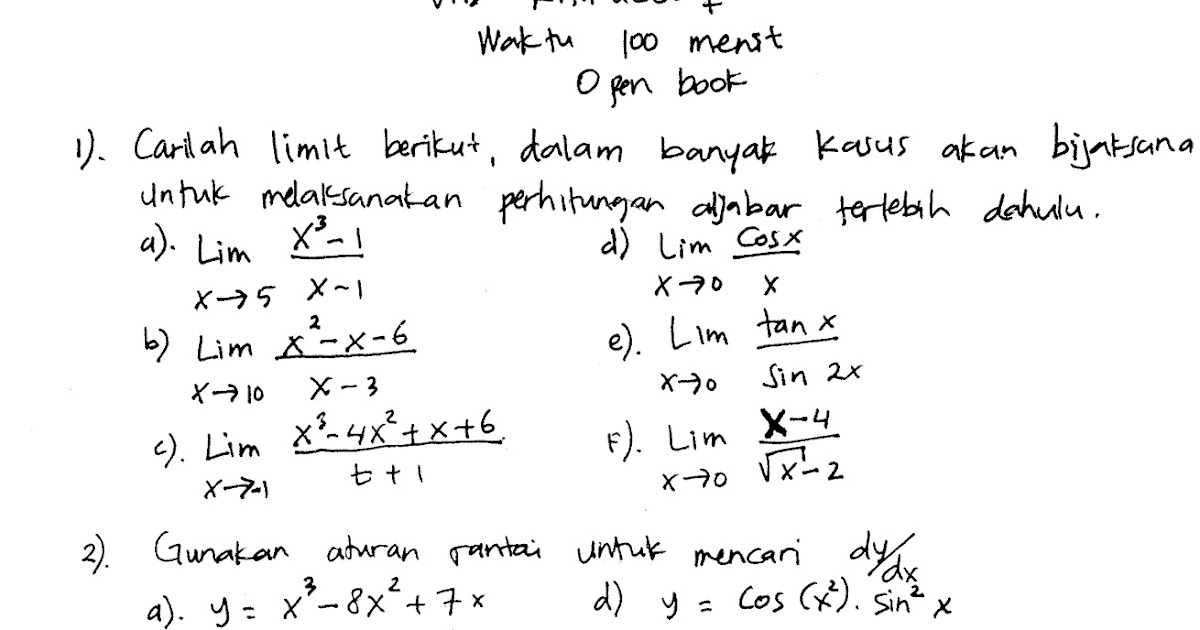 Waktu 100 menit
Open book
1). Carilah limit berikut, dalam banyak kasus akan bijaksana
untuk melaksanakan perhitungan aljabar terlebih dahulu.
a). Lim x→5 (x³-1)/(x-1)
d) Lim x→0 (cos x)/x
b) Lim x→10 (x²-x-6)/(x-3)
e). Lim x→0 (tan x)/(sin 2x)
c). Lim x→-1 (x³-4x²+x+6)/(t+1)
F). Lim x→0 (x-4)/(√x-2)
2). Gunakan aturan rantai untuk mencari dy/dx
a). y = x³-8x²+7x
d) y = cos (x²). sin² x